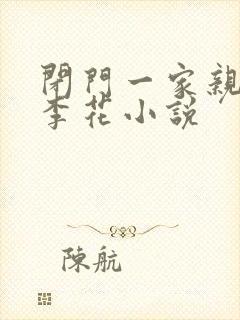 閉門一家親
李花小說
陳航